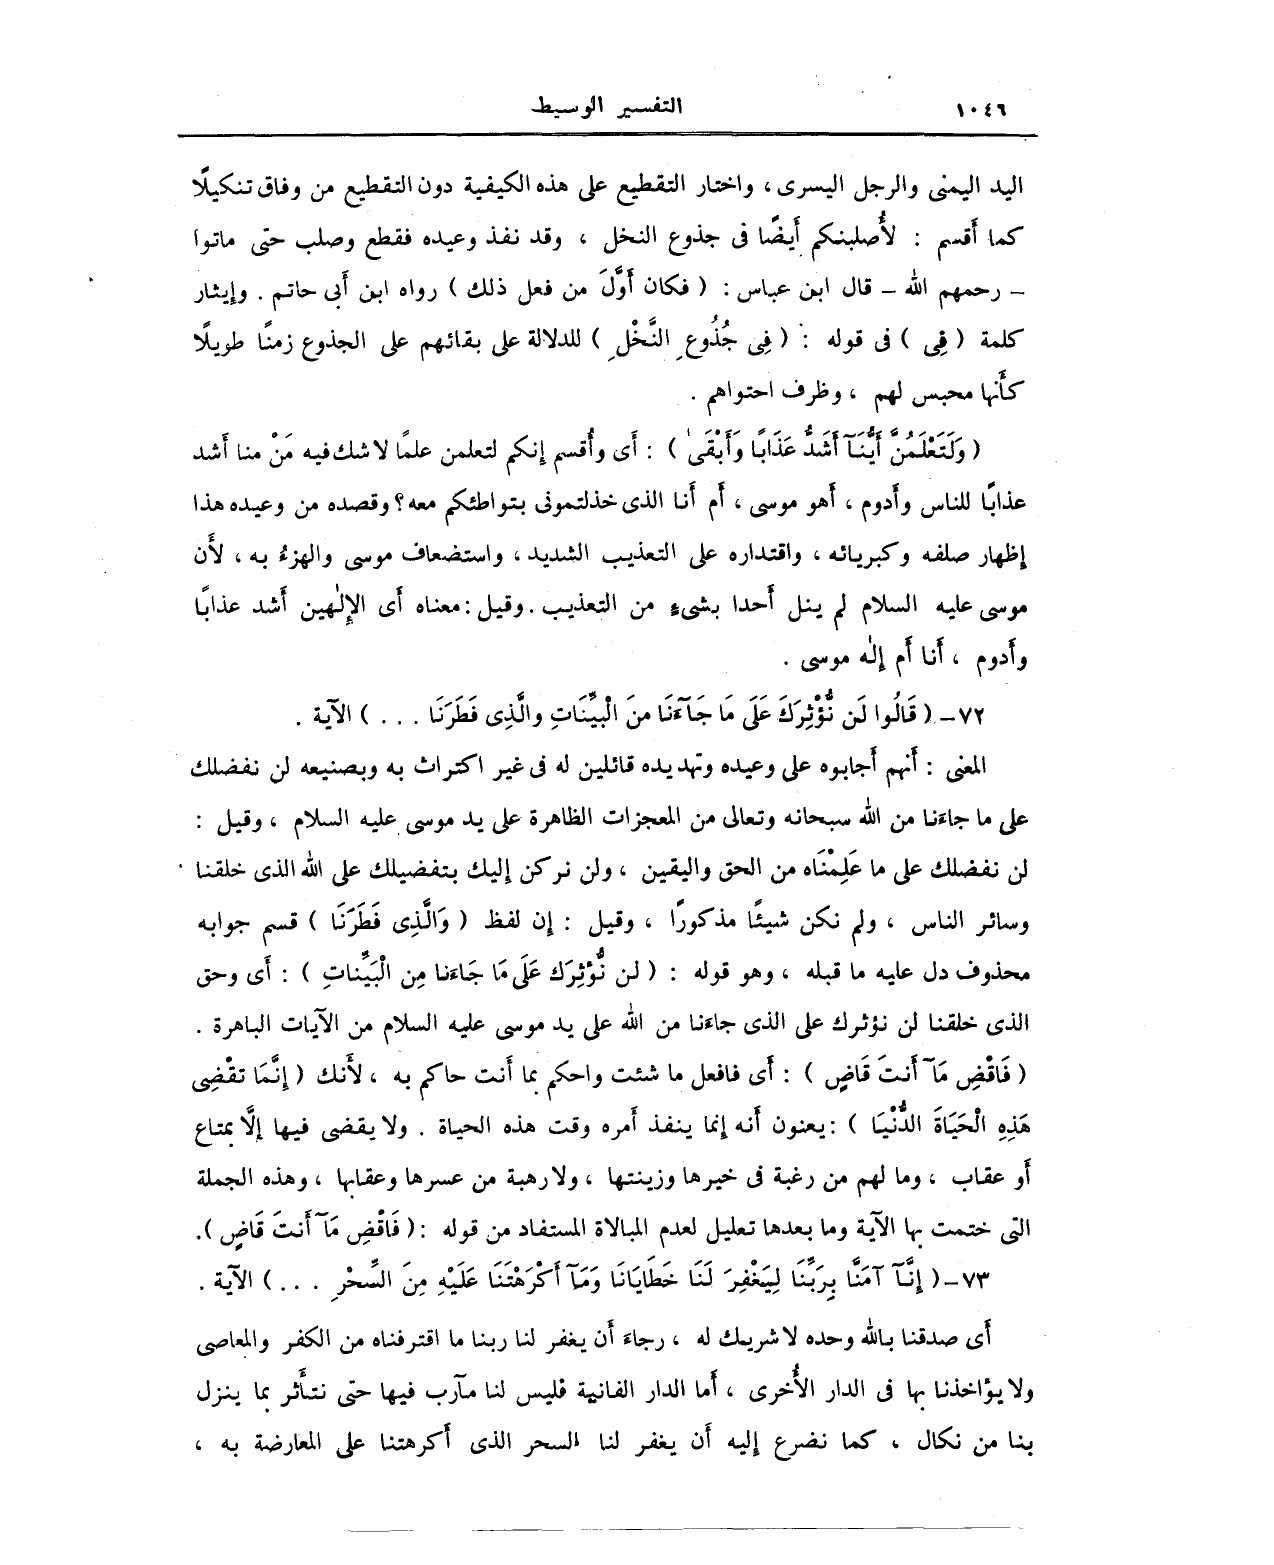 ١٠٤٦ التفسير الوسيط
اليد اليمنى والرجل اليسرى ، واختار التقطيع على هذه الكيفية دون التقطيع من وفاق تنكيلًا
كما أَقسم : لأُصلبنكم أَيضًا فى جذوع النخل ، وقد نفذ وعيده فقطع وصلب حتى ماتوا
ـ رحمهم الله ـ قال ابن عباس : ( فكان أَوَّلَ من فعل ذلك ) رواه ابن أَبى حاتم . وإيثار
كلمة ( فِى ) فى قوله : ( فِى جُذُوعِ النَّخْلِ ) للدلالة على بقائهم على الجذوع زمنًا طويلًا
كأَنها محبس لهم ، وظرف احتواهم .
( وَلَتَعْلَمُنَّ أَيُّنَآ أَشَدُّ عَذَابًا وَأَبْقَىٰ ) : أَى وأُقسم إنكم لتعلمن علمًا لا شك فيه مَنْ منا أَشد
عذابًا للناس وأَدوم ، أَهو موسى ، أَم أَنا الذى خذلتمونى بتواطئكم معه؟ وقصده من وعيده هذا
إظهار صلفه وكبريائه ، واقتداره على التعذيب الشديد ، واستضعاف موسى والهزءُ به ، لأَن
موسى عليه السلام لم ينل أَحدا بشىءٍ من التعذيب . وقيل : معناه أَى الإِلٰهين أَشد عذابًا
وأَدوم ، أَنا أَم إلٰه موسى .
٧٢ـ ( قَالُوا لَن نُّؤْثِرَكَ عَلَى مَا جَآءَنَا مِنَ الْبَيِّنَاتِ والَّذِى فَطَرَنَا . . . ) الآية .
المعنى : أَنهم أَجابوه على وعيده وتهديده قائلين له فى غير اكتراث به وبصنيعه لن نفضلك
على ما جاءَنا من الله سبحانه وتعالى من المعجزات الظاهرة على يد موسى عليه السلام ، وقيل :
لن نفضلك على ما عَلِمْنَاه من الحق واليقين ، ولن نركن إليك بتفضيلك على الله الذى خلقنا
وسائر الناس ، ولم نكن شيئًا مذكورًا ، وقيل : إن لفظ ( وَالَّذِى فَطَرَنَا ) قسم جوابه
محذوف دل عليه ما قبله ، وهو قوله : ( لن نُّؤثِرَك عَلَى مَا جَاءَنا مِن الْبَيِّناتِ ) : أَى وحق
الذى خلقنا لن نؤثرك على الذى جاءَنا من الله على يد موسى عليه السلام من الآيات الباهرة .
( فَاقْضِ مَآ أَنتَ قَاضٍ ) : أَى فافعل ما شئت واحكم بما أَنت حاكم به ، لأَنك ( إنَّمَا تقْضِى
هَذِهِ الْحَيَاةَ الدُّنْيَا ) : يعنون أَنه إنما ينفذ أَمره وقت هذه الحياة . ولا يقضى فيها إلَّا بمتاع
أَو عقاب ، وما لهم من رغبة فى خيرها وزينتها ، ولا رهبة من عسرها وعقابها ، وهذه الجملة
التى ختمت بها الآية وما بعدها تعليل لعدم المبالاة المستفاد من قوله : ( فَاقْضِ مَآ أَنتَ قَاضٍ ).
٧٣ـ ( إنَّآ آمَنَّا بِرَبِّنَا لِيَغْفِرَ لَنَا خَطَايَانَا وَمَآ أَكْرَهْتَنَا عَلَيْهِ مِنَ السِّحْرِ . . . ) الآية .
أَى صدقنا بالله وحده لا شريك له ، رجاءَ أَن يغفر لنا ربنا ما اقترفناه من الكفر والمعاصى
ولا يؤاخذنا بها فى الدار الأُخرى ، أَما الدار الفانية فليس لنا مآرب فيها حتى نتأَثر بما ينزل
بنا من نكال ، كما نضرع إليه أَن يغفر لنا السحر الذى أَكرهتنا على المعارضة به ،